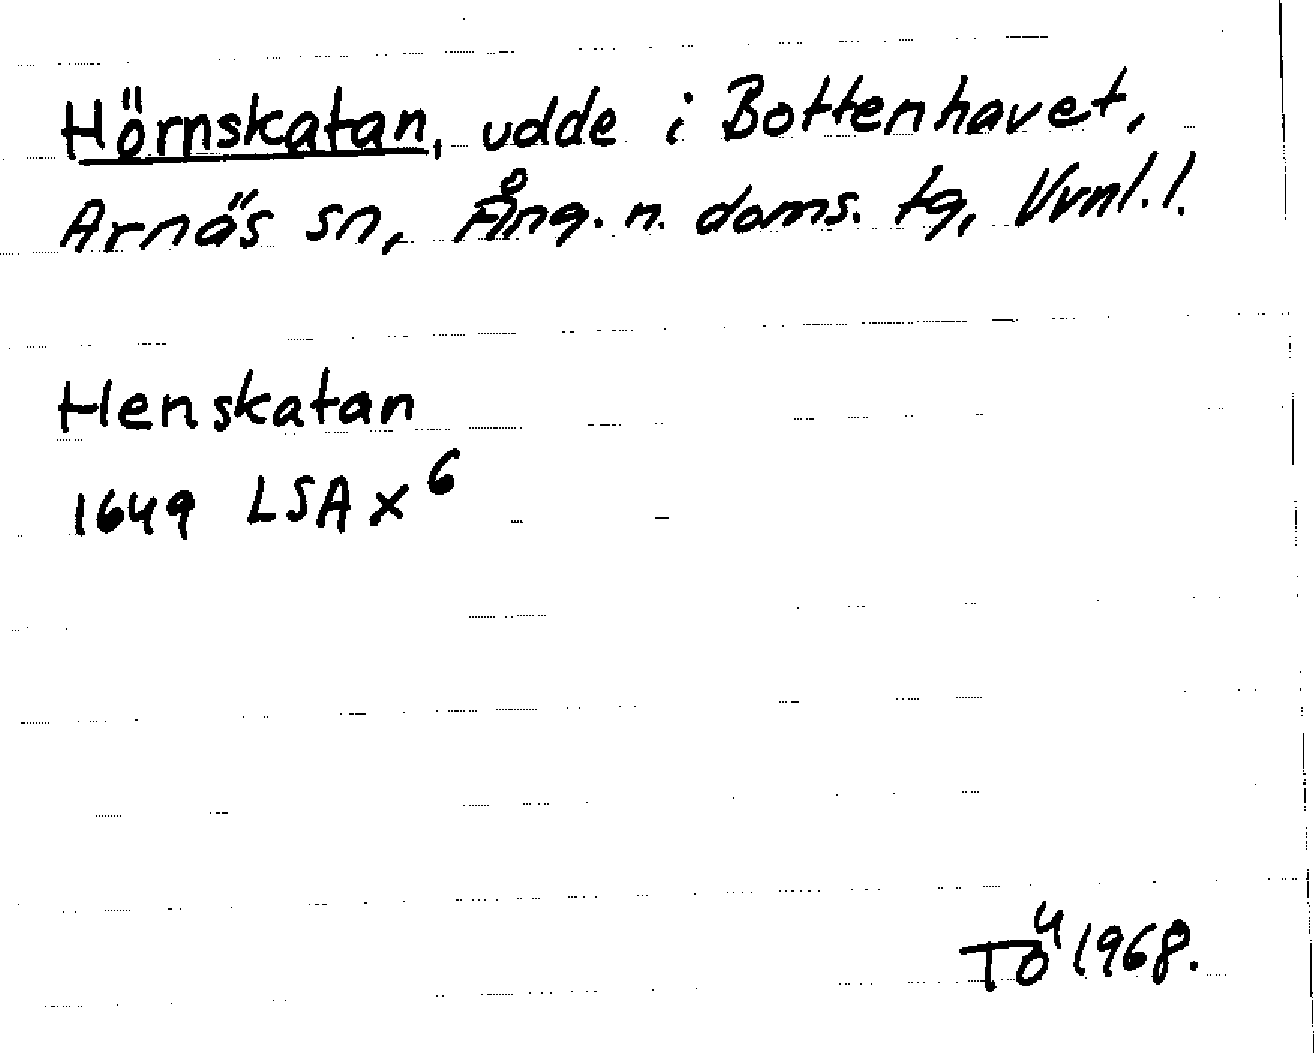 Hörnskatan, udde i Bottenhavet,
Arnäs sn, Ång. n. doms. tg, Vrnl. l.
Henskatan
1649 LSA X 6
TÖ 1968.